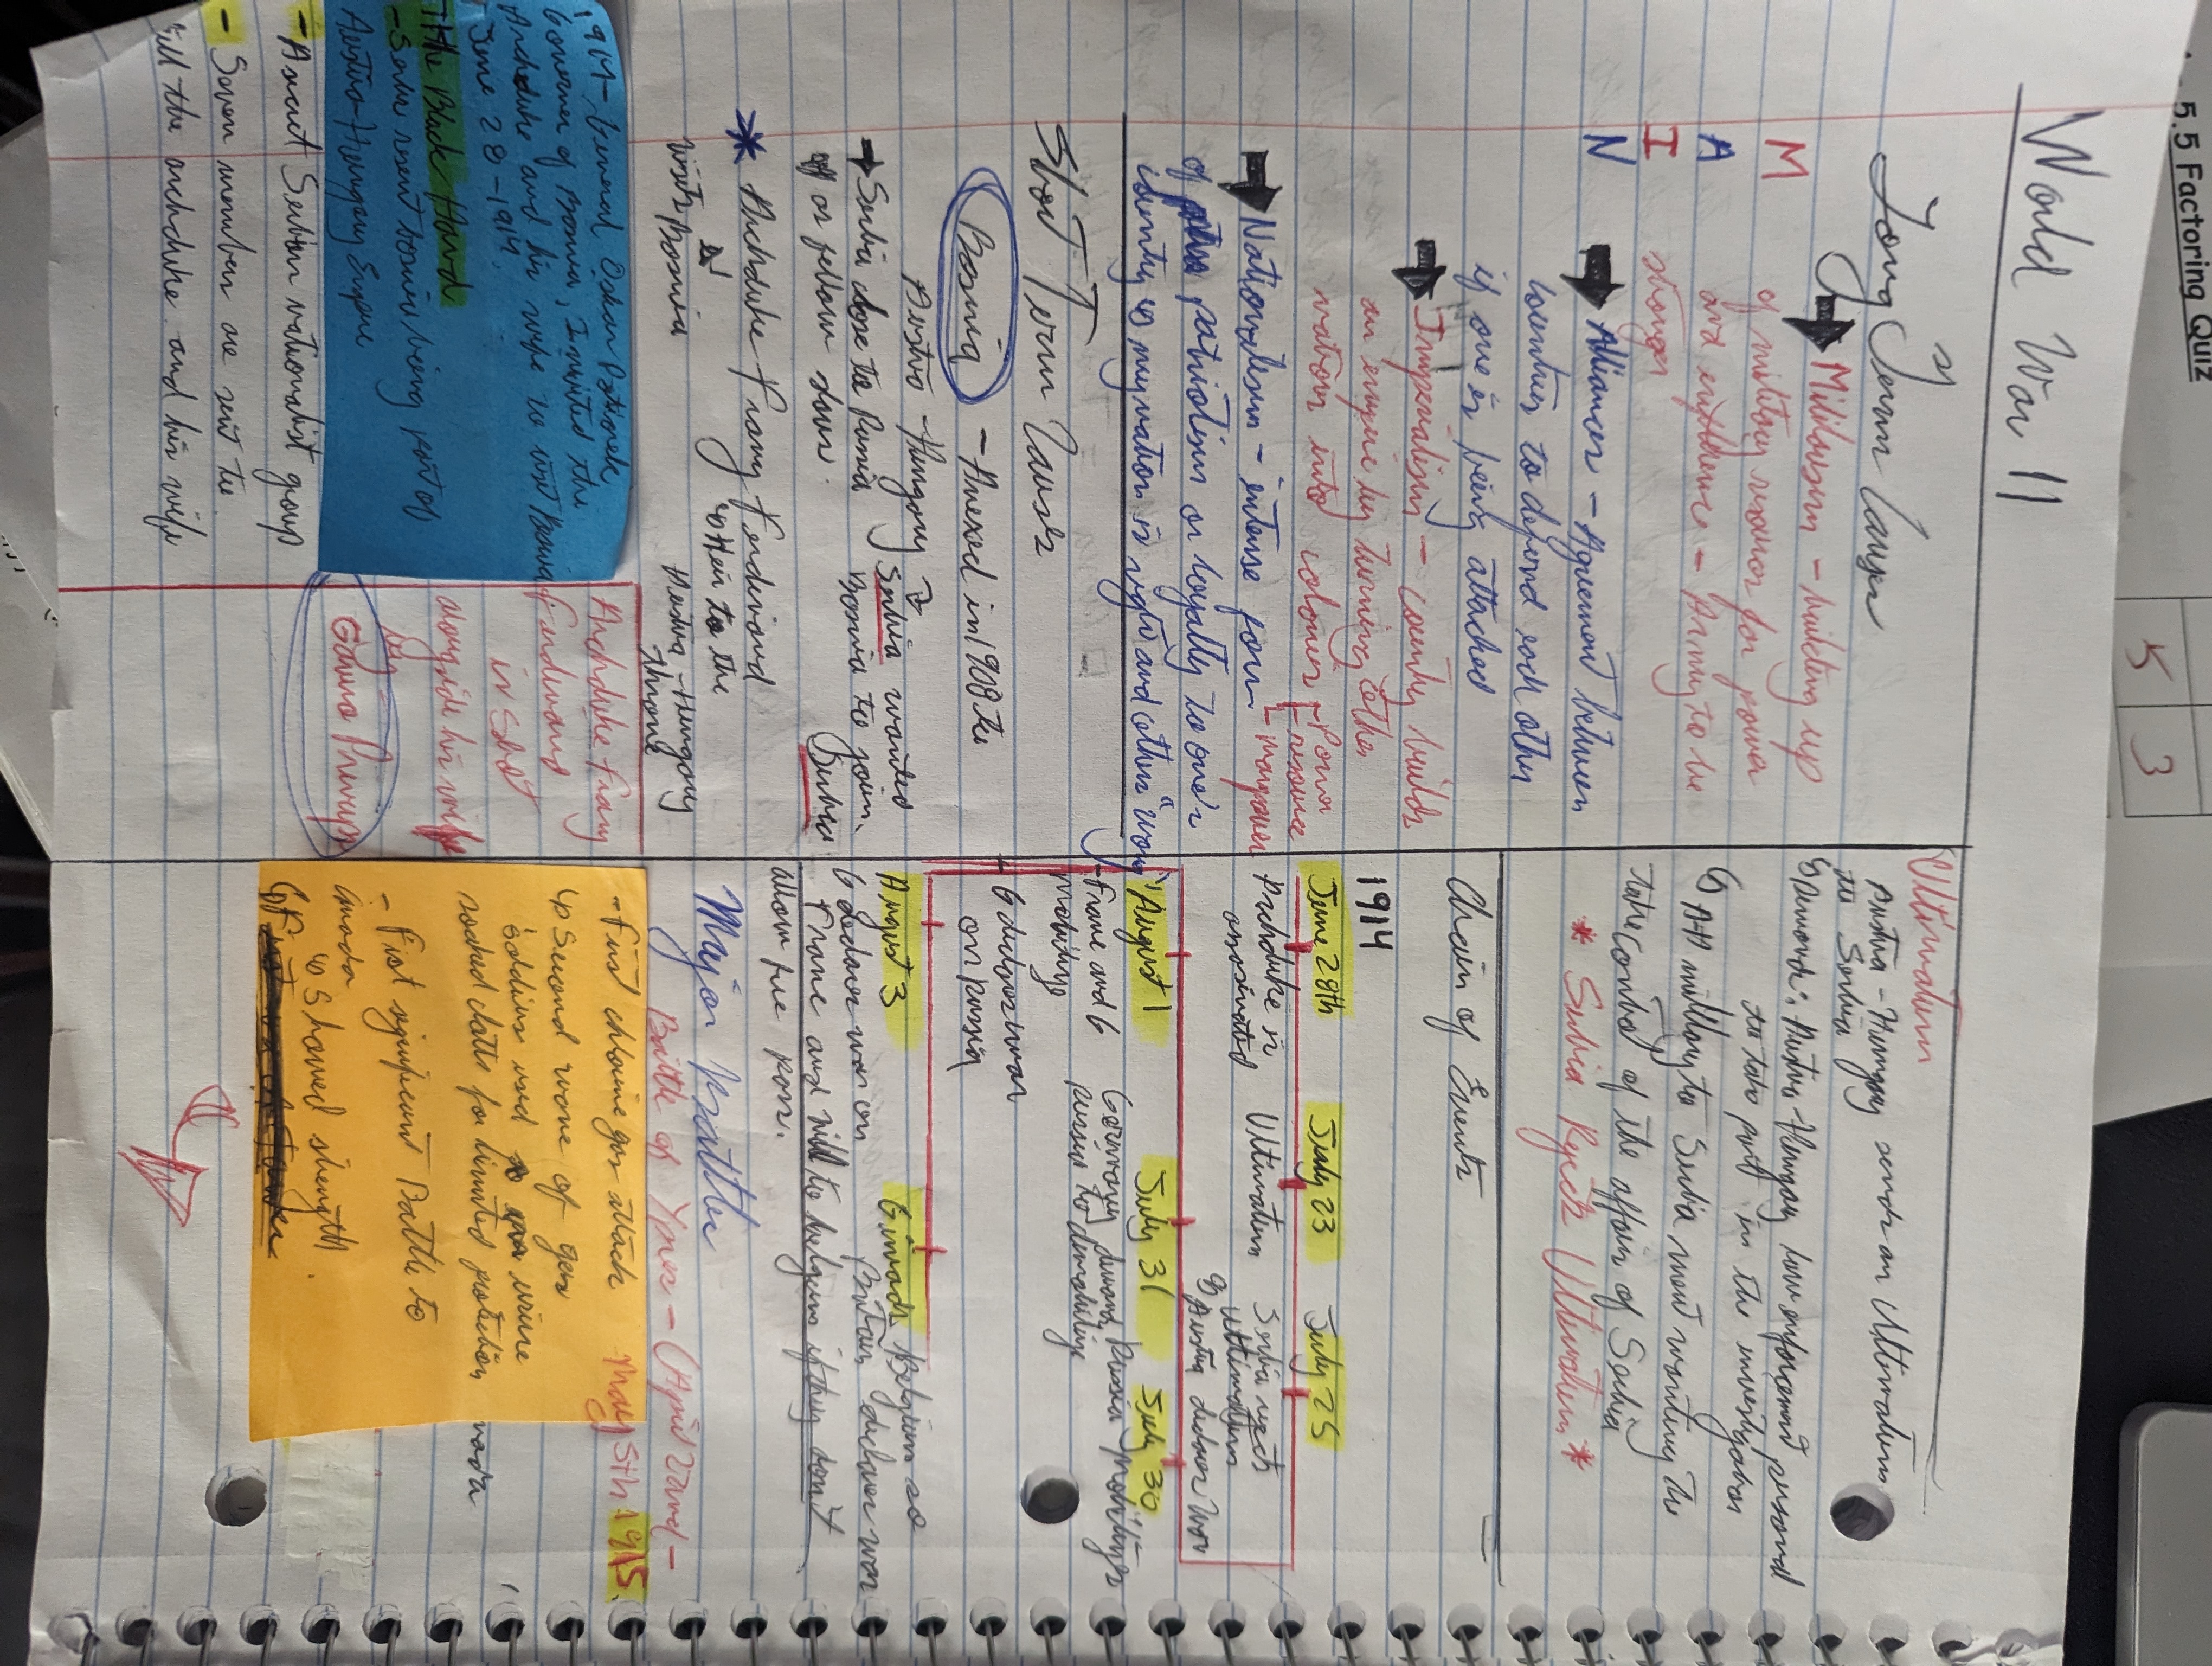 5.5 Factoring Quiz
5 3
World War 11
Long Term Causes
M
A
I
N
Militarism - building up
of military resources for power
and experience - Army to be
stronger
Alliances - Agreement between
countries to defend each other
if one is being attacked
Imperialism - country builds
an empire by turning other
nations into colonies
Nationalism - intense form
of patriotism or loyalty to one's
identity
my nation is right and others "wrong"
Short Term Causes
Bosnia - Anexed in 1908 to
Austro-Hungary
Serbia wanted
Bosnia to join.
Serbia close to Russia
as fellow slavs.
Serbia
* Archduke Franz Ferdinand
Heir to the
Austria-Hungary
Throne
visits Bosnia
1914 - General Oskar Potiorek
Governer of Bosnia, Invited the
Archduke and his wife to visit Bosnia
June 28 - 1914.
The Black Hand
- Serbs resent Bosnia being part of
Austro-Hungary Empire
- Ancient Serbian nationalist group
- Seven members are sent to
kill the archduke and his wife
Archduke Franz
Ferdinand
is Shot
alongside his wife
by -
Gavrilo Princip
Ultimatum
Austria-Hungary sends an Ultimatum
to Serbia
Demands: Austria-Hungary law enforcement personnel
to take part in the investigation
A-H military to Serbia
Take Control of the affairs of Serbia
* Serbia Reject Ultimatum *
Chain of Events
1914
June 28th July 23 July 25
Archduke is
assasinated
Ultimatum
Serbia reject
ultimatum
Austria declares War
August 1 July 31 July 30
- France and G
mobilize
Germany demands
Russia to demobilize
Russia mobilizes
G declares war
on Russia
August 3
G declare war on
France and
allow pie pass.
G invads Belgium so
Britain declares war
Major Battles
Battle of Ypres - (April 22nd -
May 5th 1915.
- First chlorine gas attack
Second wave of gas
soldiers used urine
soaked cloths for limited protection
- First significant Battle to
canada
Showed strength